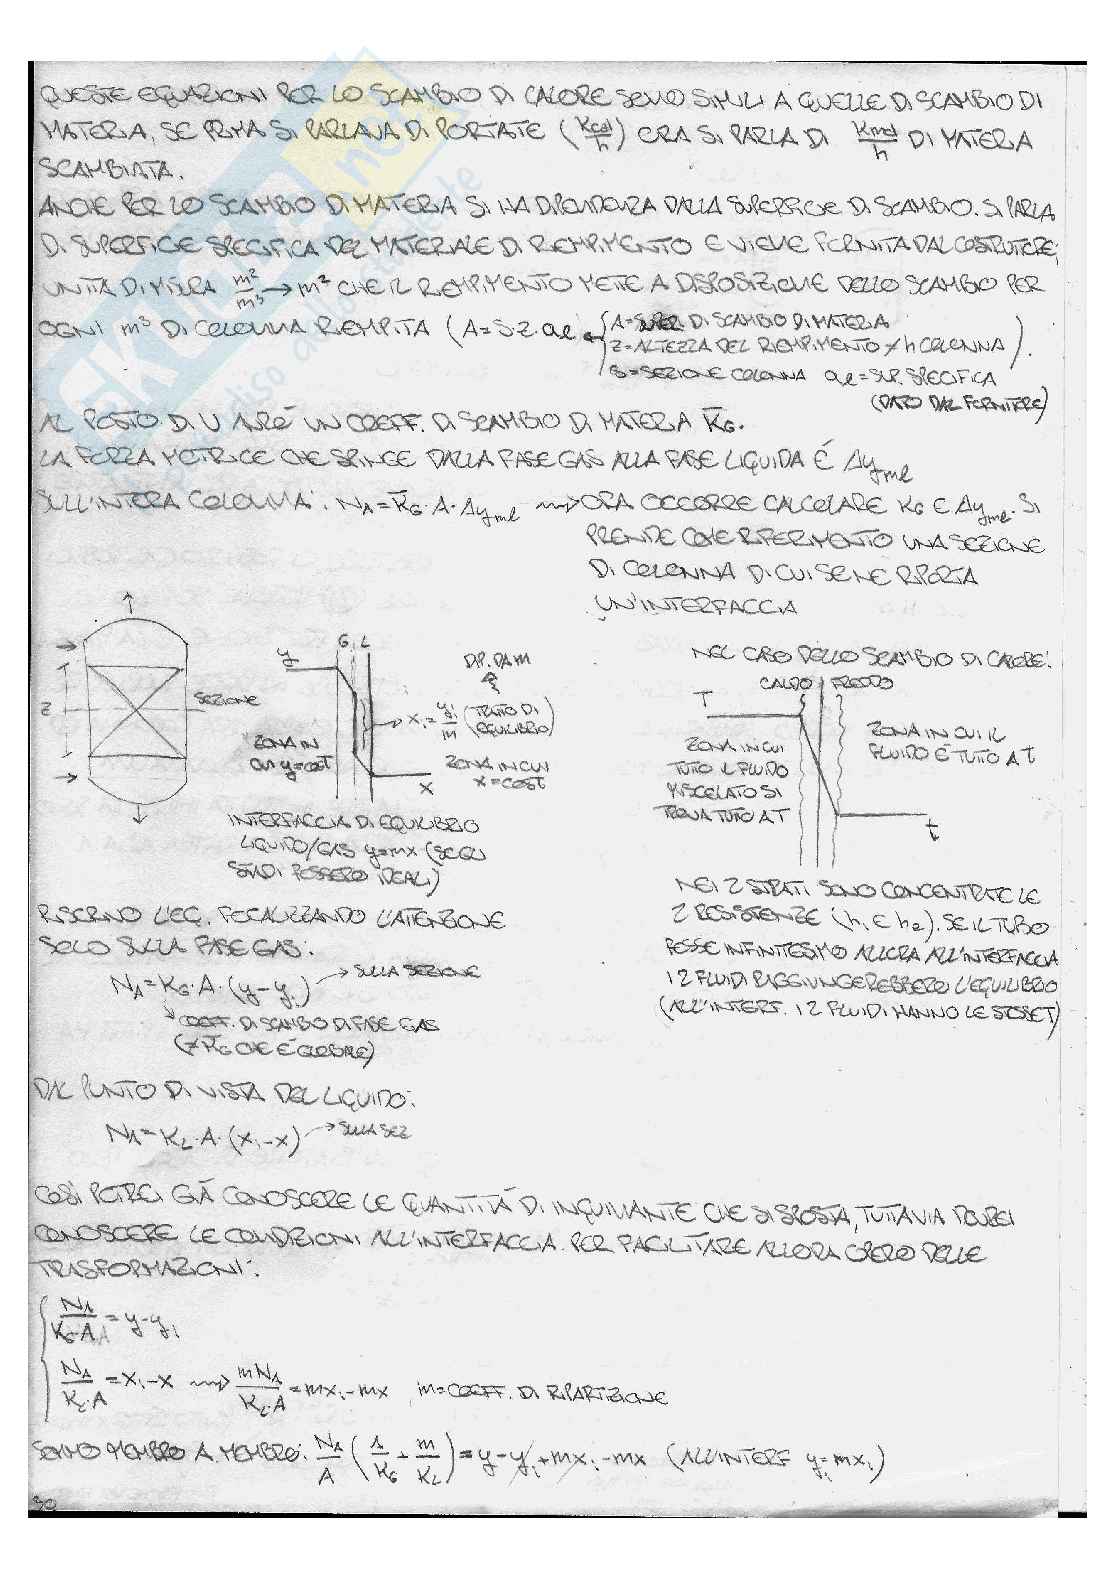 QUESTE EQUAZIONI PER LO SCAMBIO DI CALORE SONO SIMILI A QUELLE DI SCAMBIO DI
MATERIA, SE PRIMA SI PARLAVA DI PORTATE (Kcal/h) ORA SI PARLA DI Kmol/h DI MATERIA
SCAMBIATA.
ANCHE PER LO SCAMBIO DI MATERIA SI HA DIPENDENZA DALLA SUPERFICIE DI SCAMBIO. SI PARLA
DI SUPERFICIE SPECIFICA DEL MATERIALE DI RIEMPIMENTO E VIENE FORNITA DAL COSTRUTTORE;
UNITÀ DI MISURA m²/m³ → m² CHE IL RIEMPIMENTO METTE A DISPOSIZIONE DELLO SCAMBIO PER
OGNI m³ DI COLONNA RIEMPITA (A = S·Z·ae
A = SUPER. DI SCAMBIO DI MATERIA
Z = ALTEZZA DEL RIEMPIMENTO ≠ h COLONNA
S = SEZIONE COLONNA ae = SUP. SPECIFICA
(DATO DAL FORNITORE)
AL POSTO DI U AVRÒ UN COEFF. DI SCAMBIO DI MATERIA K̄G.
LA FORZA MOTRICE CHE SPINGE DALLA FASE GAS ALLA FASE LIQUIDA È Δyml
SULL'INTERA COLONNA: NA = K̄G·A·Δyml ⟿ ORA OCCORRE CALCOLARE KG E Δyml. SI
PRENDE COME RIFERIMENTO UNA SEZIONE
DI COLONNA DI CUI SE NE RIPORTA
UN'INTERFACCIA
Z
SEZIONE
G L
y
ZONA IN
CUI y=COST
x
DIP. DA m
→ xi = yi/m (TRATTO DI
EQUILIBRIO)
ZONA IN CUI
x=COST
INTERFACCIA DI EQUILIBRIO
LIQUIDO/GAS y=mx (SE GLI
STADI FOSSERO IDEALI)
NEL CASO DELLO SCAMBIO DI CALORE:
CALDO FREDDO
T
ZONA IN CUI
TUTTO IL FLUIDO
MISCELATO SI
TROVA TUTTO A T
ZONA IN CUI IL
FLUIDO È TUTTO A t
t
NEI 2 STRATI SONO CONCENTRATE LE
2 RESISTENZE (h1 E h2). SE IL TUBO
FOSSE INFINITESIMO ALLORA ALL'INTERFACCIA
I 2 FLUIDI RAGGIUNGEREBBERO L'EQUILIBRIO
(ALL'INTERF. I 2 FLUIDI HANNO LE STESSE T)
RISCRIVO L'EQ. FOCALIZZANDO L'ATTENZIONE
SOLO SULLA FASE GAS:
NA = KG·A·(y-yi) → SULLA SEZIONE
COEFF. DI SCAMBIO DI FASE GAS
(≠ K̄G CHE È GLOBALE)
DAL PUNTO DI VISTA DEL LIQUIDO:
NA = KL·A·(xi-x) → SULLA SEZ
COSÌ POTREI GIÀ CONOSCERE LE QUANTITÀ DI INQUINANTE CHE SI SPOSTA, TUTTAVIA DOVREI
CONOSCERE LE CONDIZIONI ALL'INTERFACCIA. PER FACILITARE ALLORA OPERO DELLE
TRASFORMAZIONI:
NA/(KG·A) = y-yi
NA/(KL·A) = xi-x ⟿ mNA/(KL·A) = mxi-mx m=COEFF. DI RIPARTIZIONE
SOMMO MEMBRO A MEMBRO: NA/A (1/KG + m/KL) = y-yi+mxi-mx (ALL'INTERF yi=mxi)
30